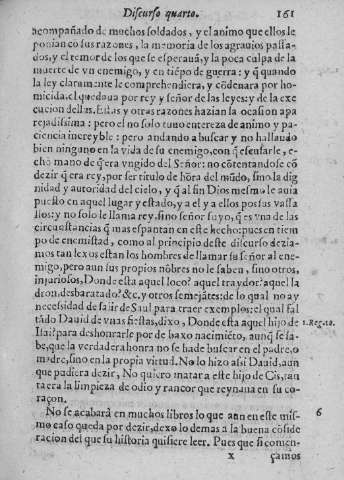 Discurso quarto. 161
acompañado de muchos soldados, y el animo que ellos le
ponian co sus razones, la memoria de los agrauios passa-
dos, y el temor de los que se esperauã, y la poca culpa de la
muerte de vn enemigo, y en tiẽpo de guerra: y q̃ quando
la ley claramente le comprehendiera, y cõdenara por ho-
micida, el quedaua por rey y señor de las leyes: y de la exe
cucion dellas. Estas y otras razones hazian la ocasion apa
rejadissima: pero el no solo tuuo entereza de animo y pa-
ciencia increyble: pero andando a buscar y no hallando
bien ninguno en la vida de su enemigo, con q̃ escusarle, e-
chò mano de q̃ era vngido del Señor: no cõtentandose cõ
dezir q̃ era rey, por ser titulo de hõra del mũdo, sino la dig
nidad y autoridad del cielo, y q̃ al fin Dios mesmo le auia
puesto en aquel lugar y estado, y a el y a ellos por sus vassa
llos: y no solo le llama rey, sino señor suyo, q̃ es vna de las
circunstancias q̃ mas espantan en este hecho: pues en tiem
po de enemistad, como al principio deste discurso dezia-
mos tan lexos estan los hombres de llamar su señor al ene-
migo, pero aun sus propios nõbres no le saben, sino otros,
injuriosos, Donde esta aquel loco? aquel traydor? aquel la
dron, desbaratado? &c. y otros semejãtes: de lo qual no ay
necessidad de salir de Saul para traer exemplos: el qual fal
tando Dauid de vnas fiestas, dixo, Donde esta aquel hijo de
Isai? para deshonrarle por de baxo nacimiẽto, aunq̃ se sa-
be, que la verdadera honra no se ha de buscar en el padre, o
madre, sino en la propia virtud. No lo hizo assi Dauid, aun
que pudiera dezir, No quiero matar a este hijo de Cis, tan
ta era la limpieza de odio y rancor que reynaua en su co-
raçon.
1. Reg. 20.
No se acabarà en muchos libros lo que aun en este mis-
mo caso queda por dezir, dexo lo demas a la buena cõside
racion del que su historia quisiere leer. Pues que si comen-
6
x çamos